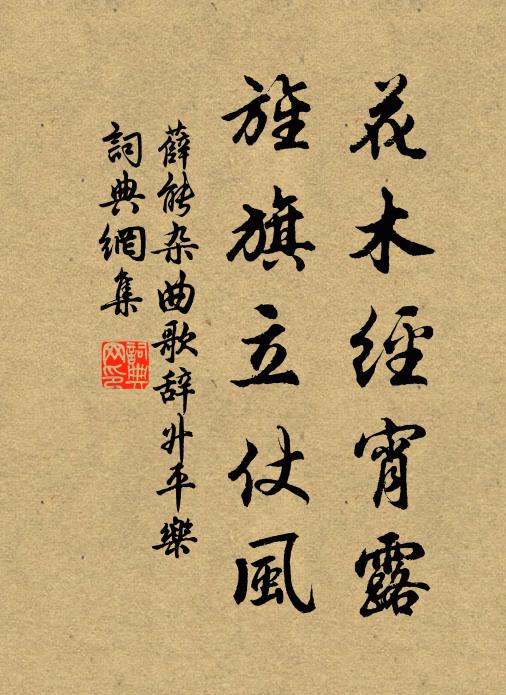 花木經宵露
旌旗立仗風
薛能杂曲歌辞升平樂
詞典網集
詞典网印